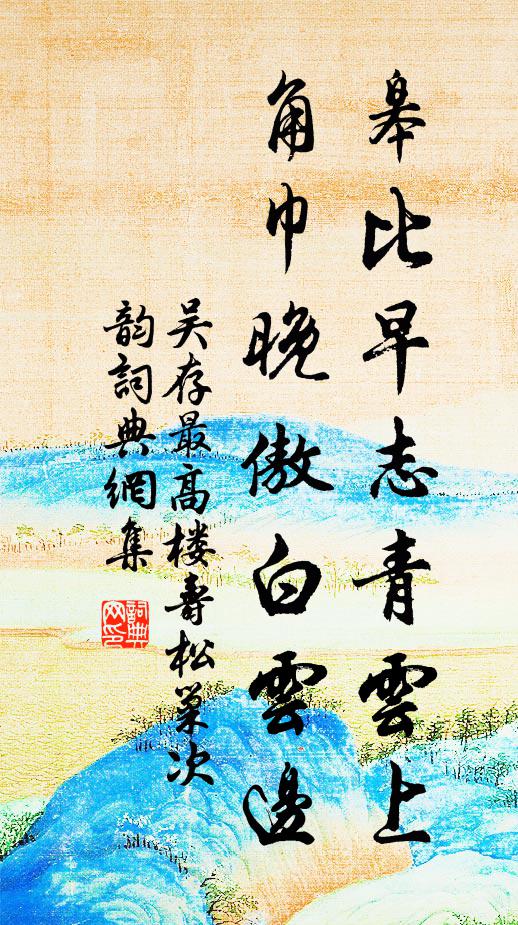 皋比早志青雲上
角巾晚傲白雲邊
吴存最高楼壽松巢次
韵詞典網集
詞典
网印